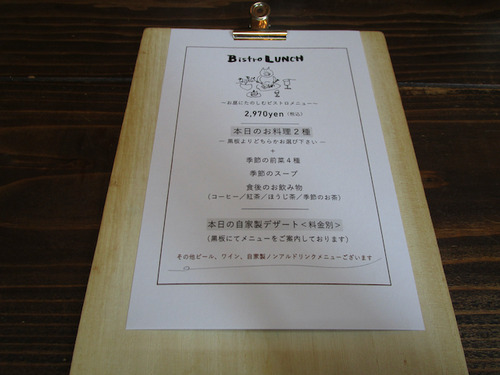 Bistro LUNCH
～お昼にたのしむビストロメニュー～
2,970yen（税込）
本日のお料理２種
― 黒板よりどちらかお選び下さい ―
+
季節の前菜４種
季節のスープ
食後のお飲み物
(コーヒー／紅茶／ほうじ茶／季節のお茶)
本日の自家製デザート＜料金別＞
(黒板にてメニューをご案内しております)
その他ビール、ワイン、自家製ノンアルドリンクメニューございます